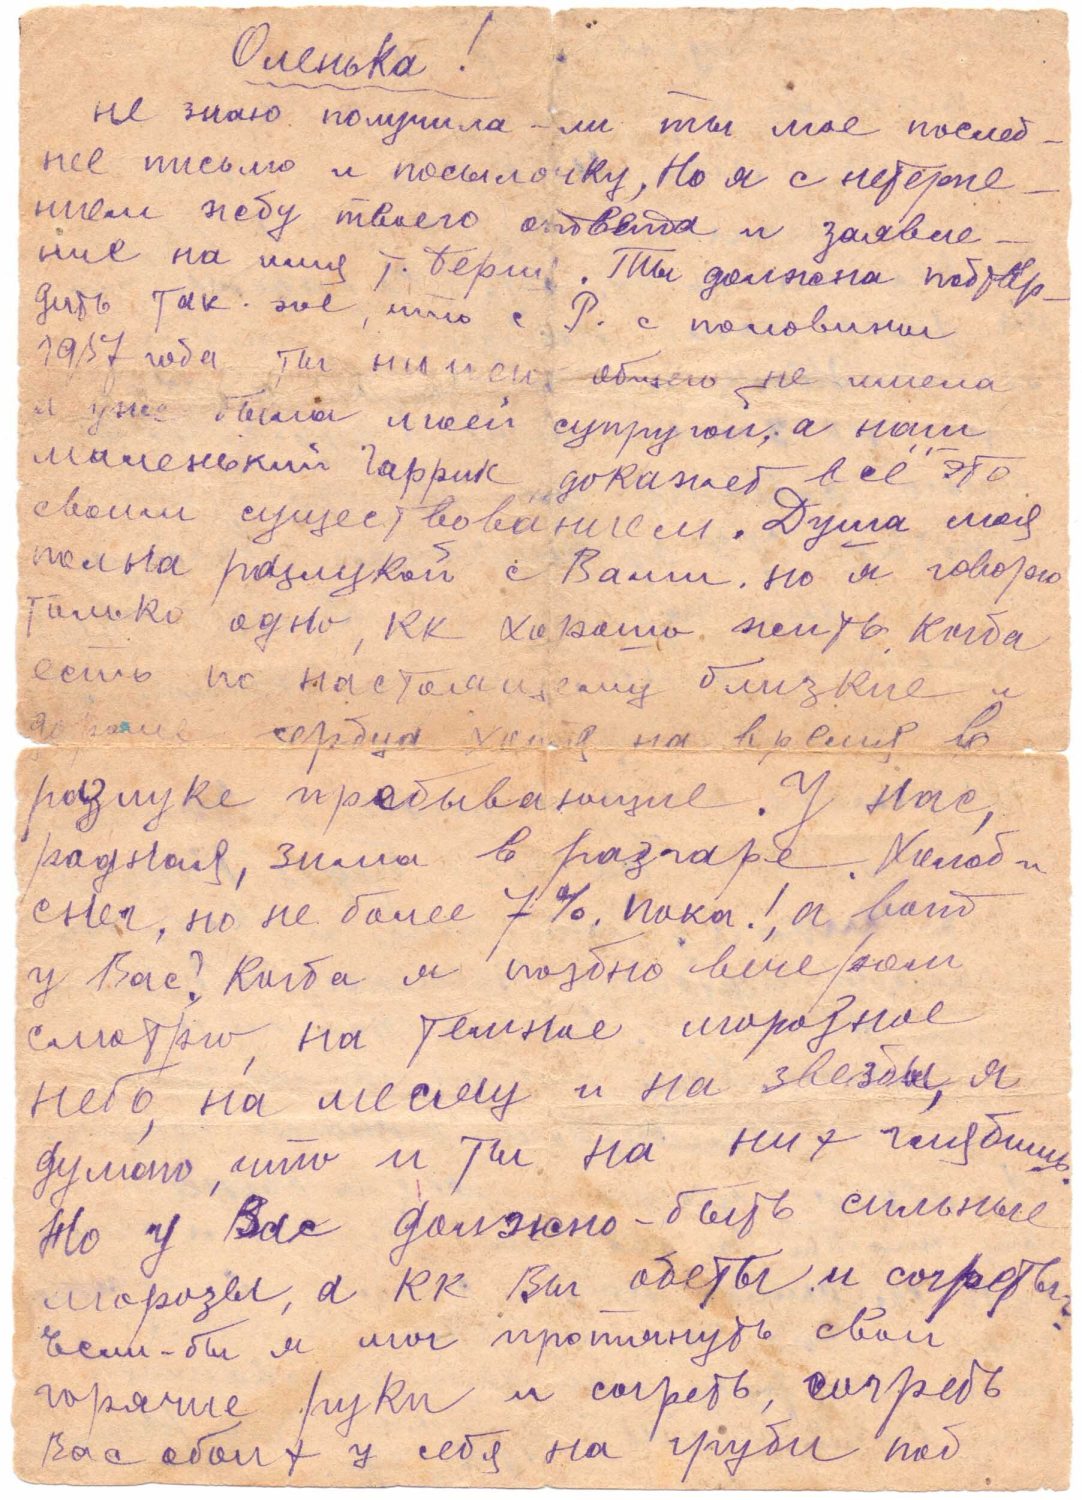 Оленька!
не знаю получила-ли ты мое послед-
нее письмо и посылочку, Но я с нетерпе-
нием жду твоего ответа и заявле-
ние на имя т. Берии. Ты должна подтвер-
дить так-же, что с Р. с половины
1937 года ты ничего общего не имела
и уже была моей супругой, а наш
маленький Гаррик докажет всё это
своим существованием. Душа моя
полна разлукой с Вами. но я говорю
только одно, кк хорошо жить, когда
есть по настоящему близкие и
сердца хотя на время в
разлуке пребывающие. У нас,
родная, зима в разгаре. Холод и
снег, но не более 7%. пока!, а вот
у Вас? Когда я поздно вечером
смотрю, на темное морозное
небо, на месяц и на звезды, я
думаю, что и ты на них глядишь.
Но у Вас должно-быть сильные
морозы, а кк Вы одеты и согреты?
Если-бы я мог протянуть свои
горячие руки и согреть, согреть
Вас обоих у себя на груди под